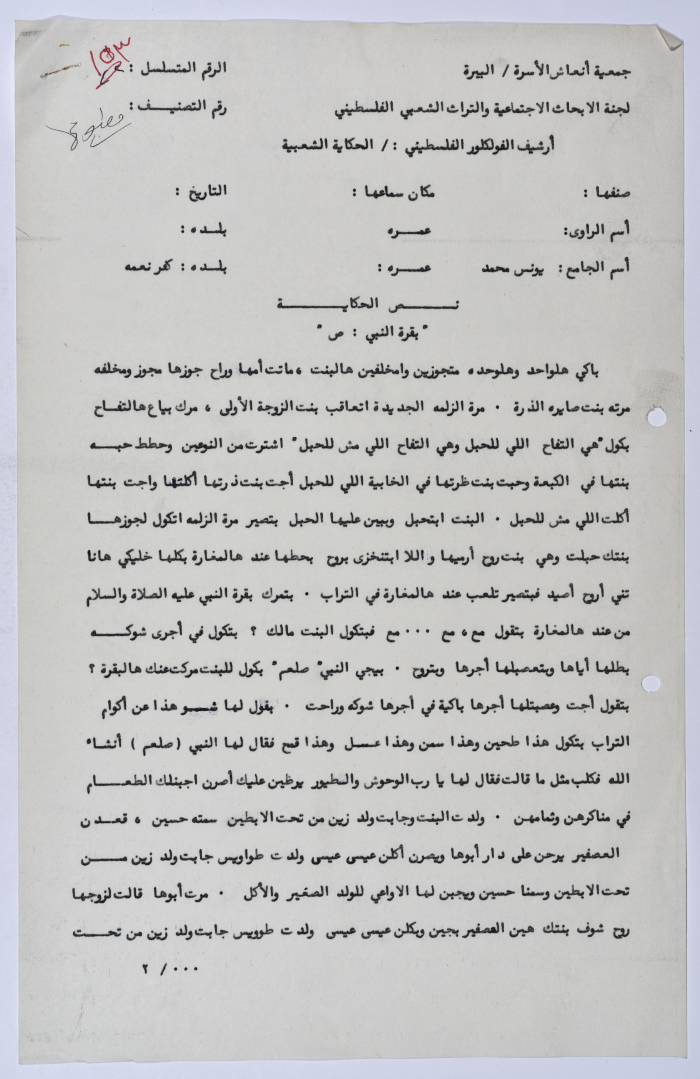 ١٥٣
جمعية أنعاش الأسرة / البيرة الرقم المتسلسل :
لجنة الابحاث الاجتماعية والتراث الشعبي الفلسطيني رقم التصنيف :
أرشيف الفولكلور الفلسطيني : / الحكاية الشعبية
صنفها : مكان سماعها : التاريخ :
أسم الراوى: عمره بلده :
أسم الجامع : يونس محمد عمره : بلده : كفر نعمه
نص الحكاية
" بقرة النبي : ص "
باكي هلواحد وهلوحده متجوزين وامخلفين هالبنت ، ماتت أمها وراح جوزها مجوز ومخلفه
مرته بنت صايره الذرة ٠ مرة الزلمه الجديدة اتعاقب بنت الزوجة الأولى ، مرك بياع هالتفاح
بكول "هي التفاح اللي للحبل وهي التفاح اللي مش للحبل" اشترت من النوعين وحطط حبه
بنتها في الكبعة وحبت بنت ظرتها في الخابية اللي للحبل أجت بنت ذرتها أكلتها واجت بنتها
أكلت اللي مش للحبل ٠ البنت ابتحبل وببين عليها الحبل بتصير مرة الزلمه اتكول لجوزها
بنتك حبلت وهي بنت روح أرميها واللا ابتنخزى بروح بحطها عند هالمغارة بكلها خليكي هانا
تني أروح أصيد فبتصير تلعب عند هالمغارة في التراب ٠ بتمرك بقرة النبي عليه الصلاة والسلام
من عند هالمغارة بتقول مع ، مع ٠٠٠ مع فبتكول البنت مالك ؟ بتكول في أجرى شوكه
بطلها أياها وبتعصبلها أجرها وبتروح ٠ بيجي النبي" صلعم" بكول للبنت مركت عنك هالبقرة ؟
بتقول أجت وعصبتلها أجرها باكية في أجرها شوكه وراحت ٠ بقول لها شو هذا عن أكوام
التراب بتكول هذا طحين وهذا سمن وهذا عسل وهذا قمح فقال لها النبي ( صلعم ) أنشاء
الله فكلب مثل ما قالت فقال لها يا رب الوحوش والطيور يرظين عليك أصرن اجبنلك الطعام
في مناكرهن وثمامهن ٠ ولدت البنت وجابت ولد زين من تحت الابطين سمته حسين ، قعدن
العصفير يرحن على دار أبوها ويصرن أكلن عيسى عيسى ولدت طواويس جابت ولد زين من
تحت الابطين وسمنا حسين ويجبن لها الاواعي للولد الصغير والأكل ٠ مرت أبوها قالت لزوجها
روح شوف بنتك هين العصفير بجين وبكلن عيسى عيسى ولدت طوويس جابت ولد زين من تحت
٠٠٠ / ٢